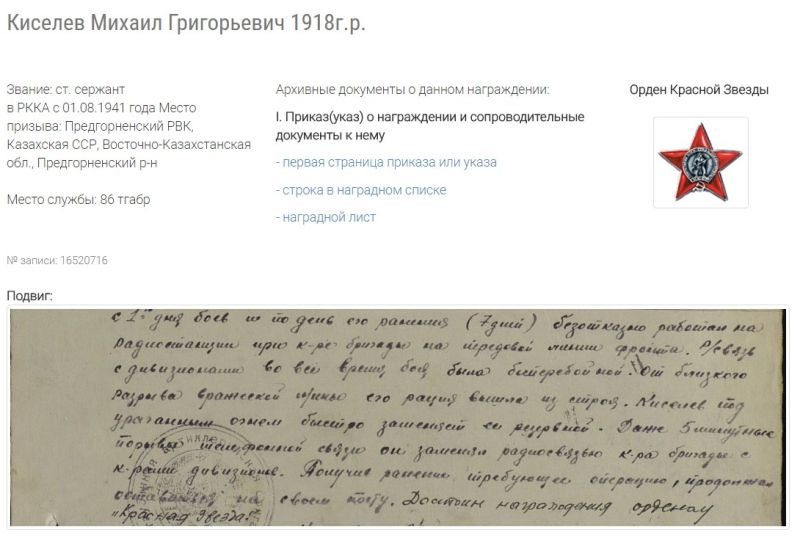 Киселев Михаил Григорьевич 1918г.р.
Звание: ст. сержант
в РККА с 01.08.1941 года Место
призыва: Предгорненский РВК,
Казахская ССР, Восточно-Казахстанская
обл., Предгорненский р-н
Место службы: 86 тгабр
№ записи: 16520716
Архивные документы о данном награждении:
I. Приказ(указ) о награждении и сопроводительные
документы к нему
- первая страница приказа или указа
- строка в наградном списке
- наградной лист
Орден Красной Звезды
Подвиг:
с 1го дня боев и по день его ранения (7 дней) безотказно работал на
радиостанции при к-ре бригады на передовой линии фронта. Р/связь
с дивизионами во всё время боя была бесперебойной. От близкого
разрыва вражеской мины его рация вышла из строя. Киселев под
ураганным огнем быстро заменяет её резервной. Даже 5 минутные
порывы телефонной связи он заменял радиосвязью к-ра бригады с
к-рами дивизионов. Получив ранение требующее операцию, продолжал
оставаться на своем посту. Достоин награждения орденом
"Красная Звезда".